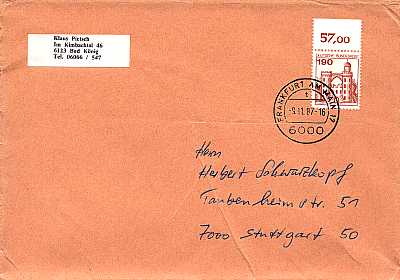 Klaus Pietsch
Im Kimbachtal 46
6123 Bad König
Tel. 06066 / 547
57,00
DEUTSCHE BUNDESPOST
190
FRANKFURT AM MAIN 17
-9.11.87-16
6000
Herrn
Herbert Schwarzkopf
Taubenheimstr 51
7000 Stuttgart 50